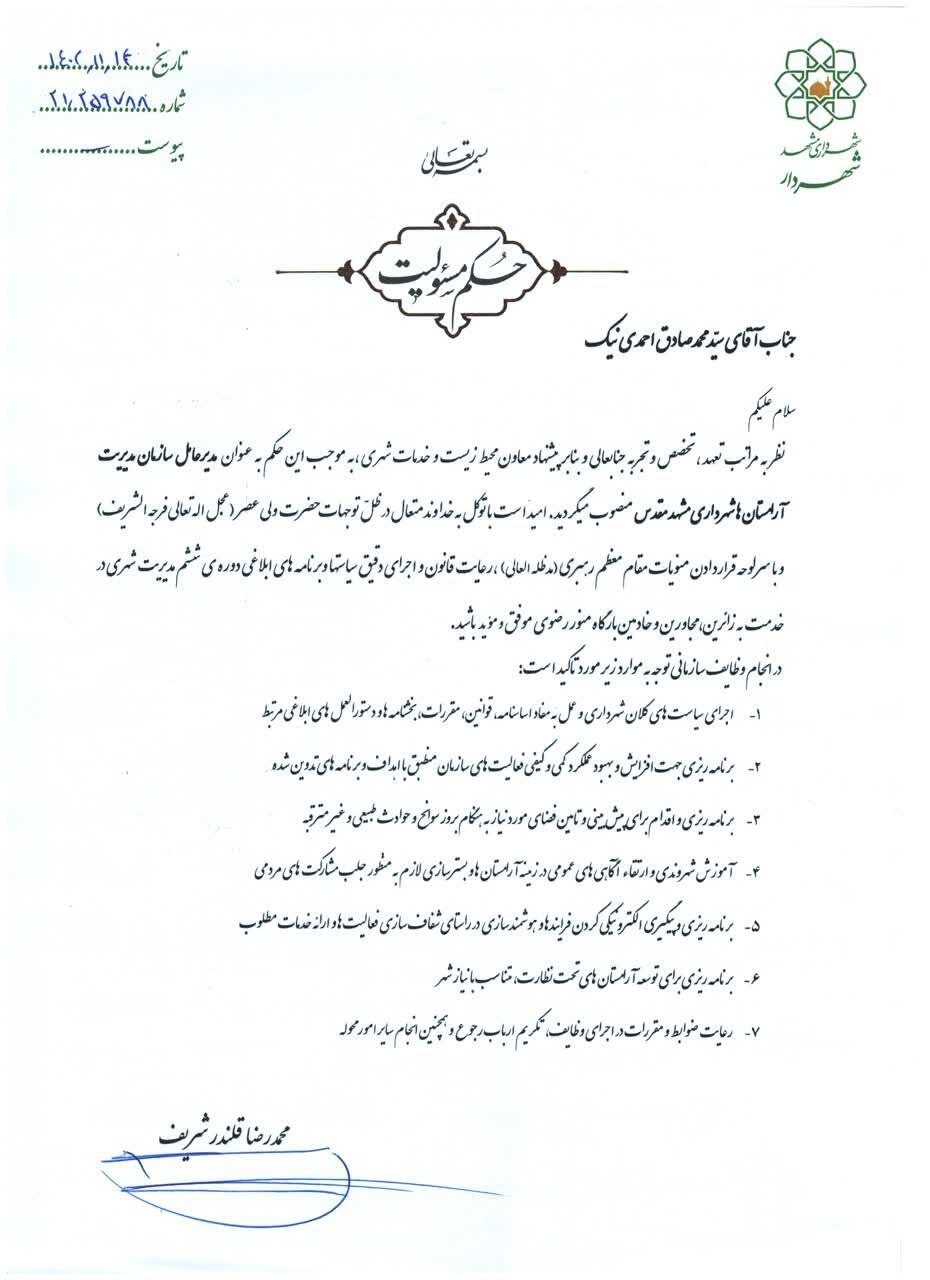 تاریخ ۱۴۰۲,۱۱,۱۴
شماره ۲۱,۲۵۹۷۸۸
پیوست
شهرداری مشهد
شهردار
بسمه تعالی
حکم مسئولیت
جناب آقای سیّد محمد صادق احمدی نیک
سلام علیکم
نظر به مراتب تعهد، تخصص و تجربه جنابعالی و بنابر پیشنهاد معاون محیط زیست و خدمات شهری، به موجب این حکم به عنوان مدیرعامل سازمان مدیریت
آرامستان ها شهرداری مشهد مقدس منصوب میگردید. امید است با توکل به خداوند متعال در ظلّ توجهات حضرت ولی عصر (عجل اله تعالی فرجه الشریف)
و با سرلوحه قرار دادن منویات مقام معظم رهبری (مدظله العالی)، رعایت قانون و اجرای دقیق سیاستها و برنامه های ابلاغی دوره ی ششم مدیریت شهری در
خدمت به زائرین، مجاورین و خادمین بارگاه منور رضوی موفق و مؤید باشید.
در انجام وظایف سازمانی توجه به موارد زیر مورد تاکید است:
۱- اجرای سیاست های کلان شهرداری و عمل به مفاد اساسنامه، قوانین، مقررات، بخشنامه ها و دستورالعمل های ابلاغی مرتبط
۲- برنامه ریزی جهت افزایش و بهبود عملکرد کمی و کیفی فعالیت های سازمان منطبق با اهداف و برنامه های تدوین شده
۳- برنامه ریزی و اقدام برای پیش بینی و تامین فضای مورد نیاز به هنگام بروز سوانح و حوادث طبیعی و غیر مترقبه
۴- آموزش شهروندی و ارتقاء آگاهی های عمومی در زمینه آرامستان ها و بسترسازی لازم به منظور جلب مشارکت های مردمی
۵- برنامه ریزی و پیگیری الکترونیکی کردن فرایندها و هوشمند سازی در راستای شفاف سازی فعالیت ها و ارائه خدمات مطلوب
۶- برنامه ریزی برای توسعه آرامستان های تحت نظارت، متناسب با نیاز شهر
۷- رعایت ضوابط و مقررات در اجرای وظایف، تکریم ارباب رجوع و همچنین انجام سایر امور محوله
محمدرضا قلندر شریف